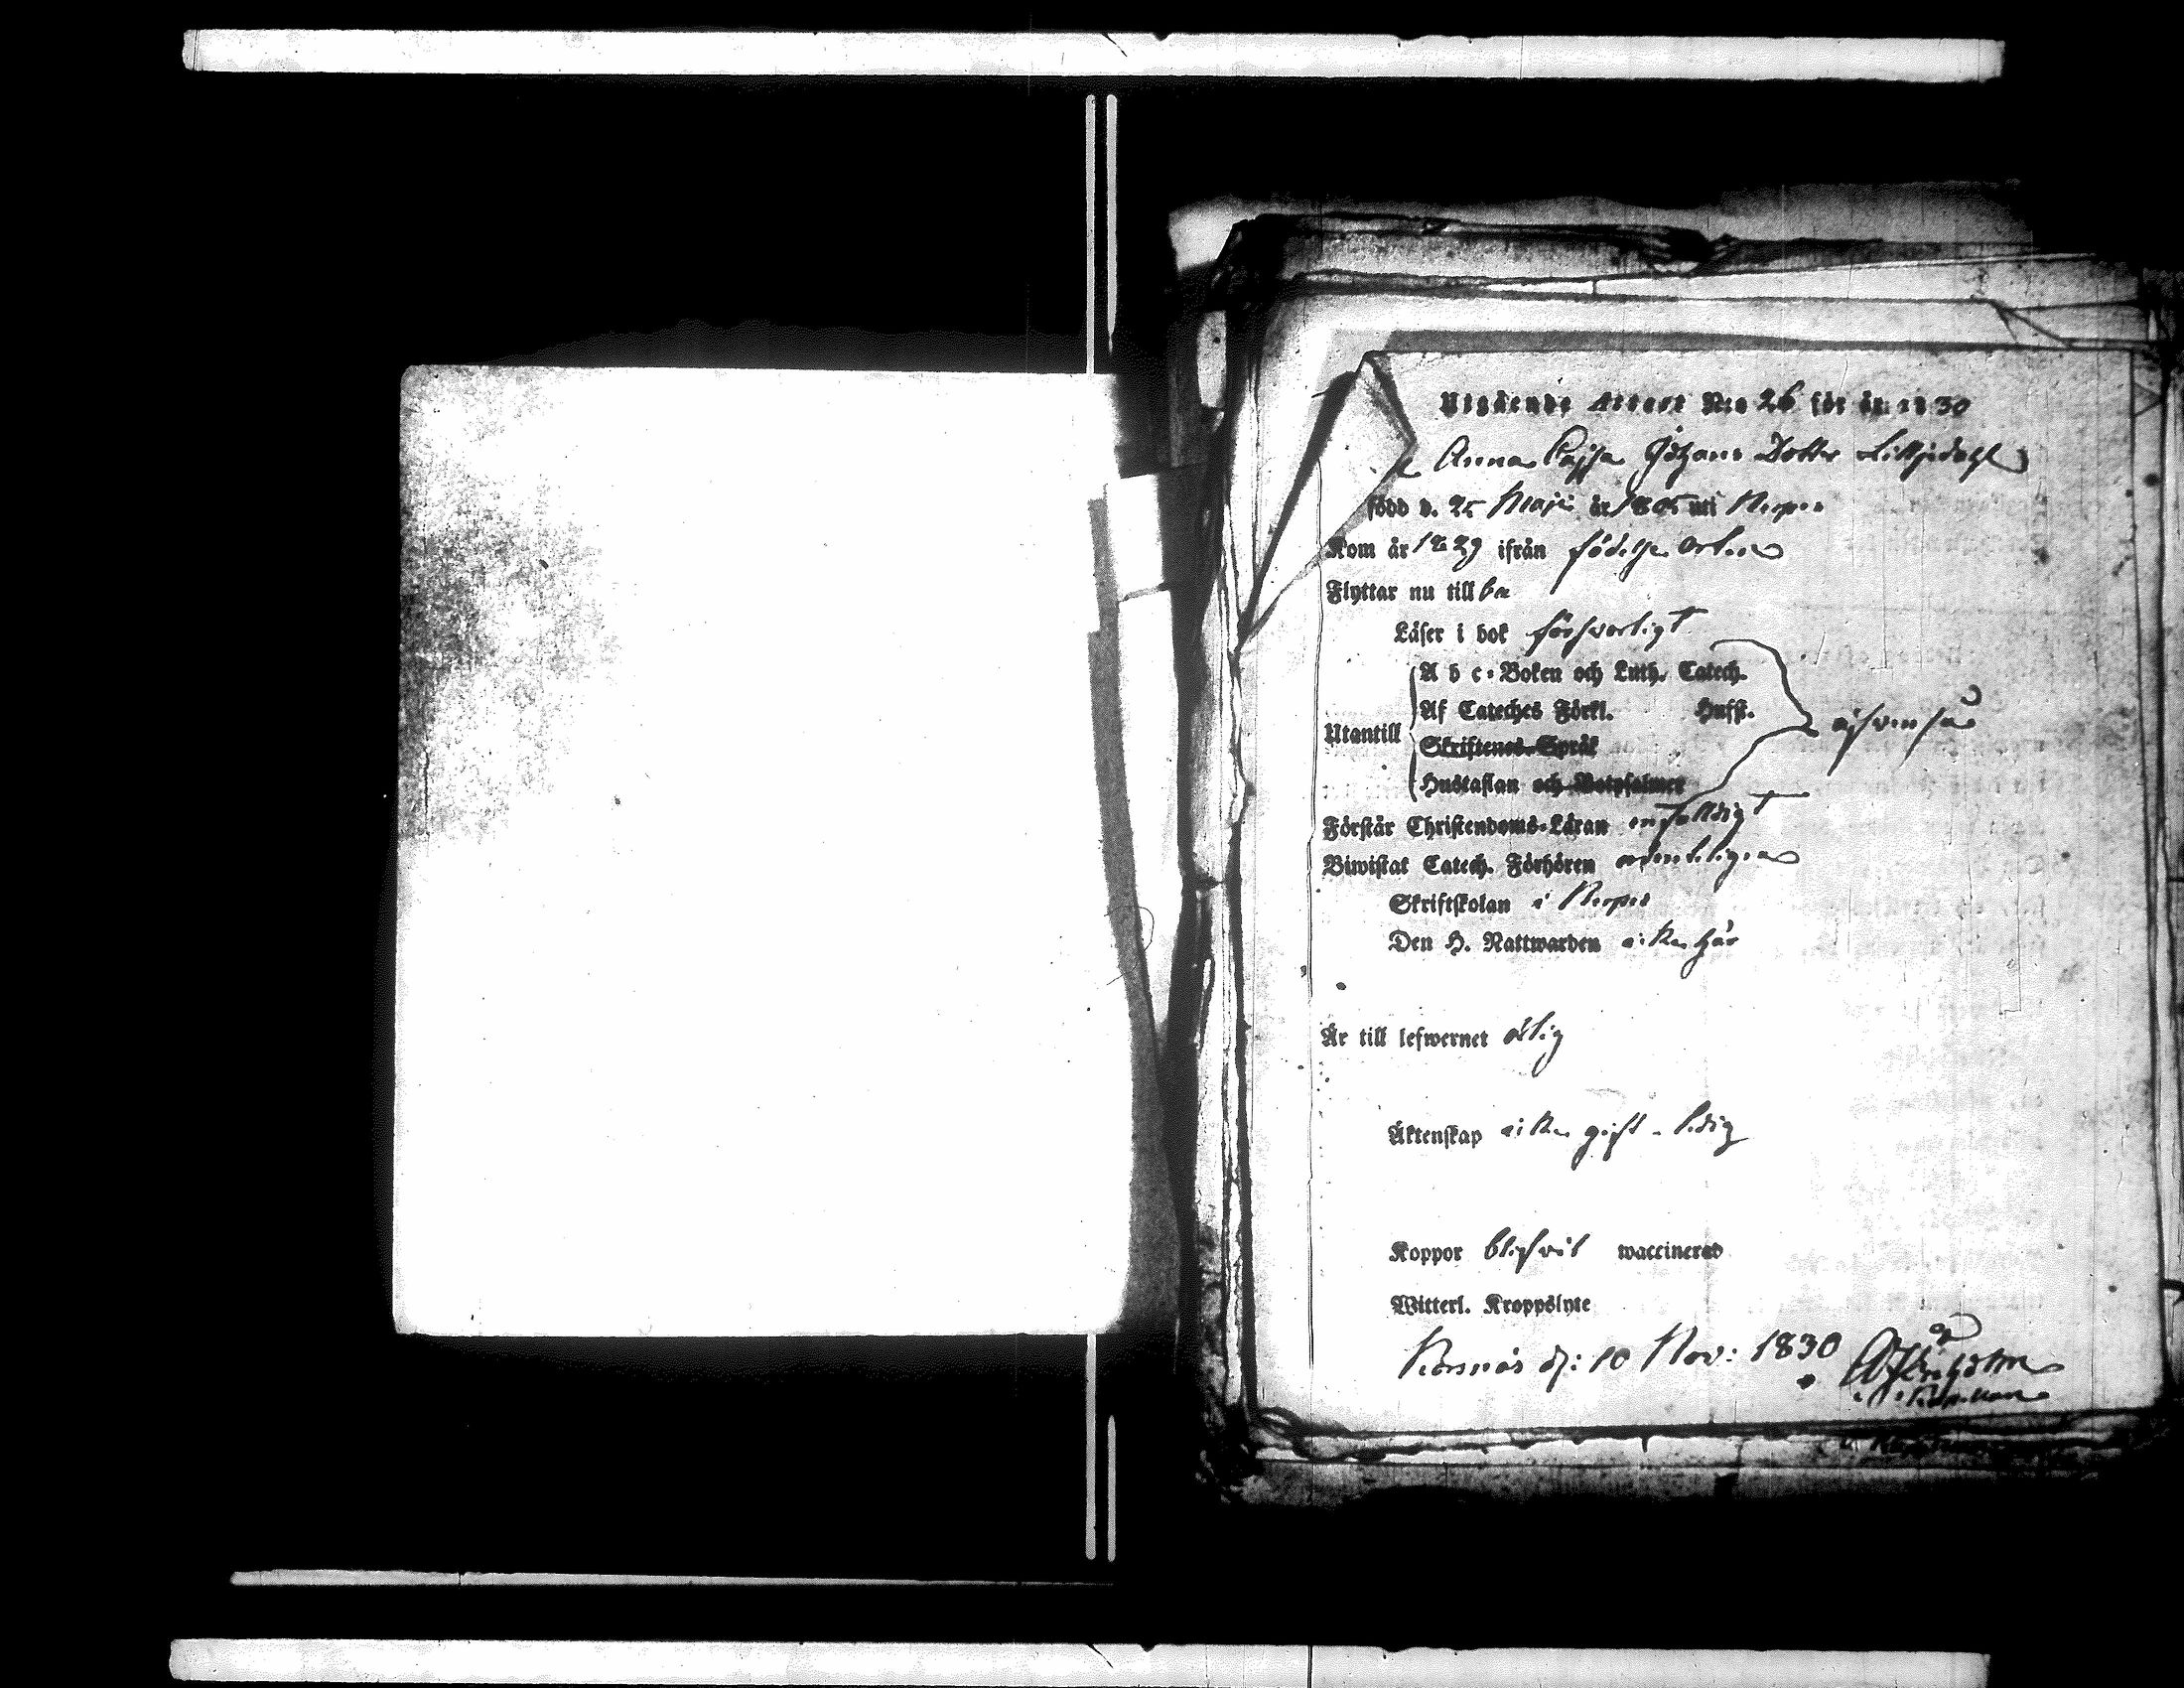 Utgående Attest N:o 26 för år 1830
Anna Cajsa Johans Dotter Lilljedahl
född d. 25 Maji år 1805 uti Nerpes
Kom år 1829 ifrån födelse orten
Flyttar nu till ba
Läser i bok försvarligt
A b c-Boken och Luth. Catech.
Af Cateches Förkl. Husst.
Utantill
Skriftenes-Språk
Hustaflan och Botpsalmer
äfvenså
Förstår Christendoms-Läran enfaldigt
Biwistat Catech. Förhören ordentligen
Skriftskolan i Nerpes
Den H. Nattwarden icke här
Är till lefwernet ärlig
Äktenskap icke gift - ledig
Koppor blifvit waccinerad
Witterl. Kroppslyte
Korsnäs d: 10 Nov: 1830